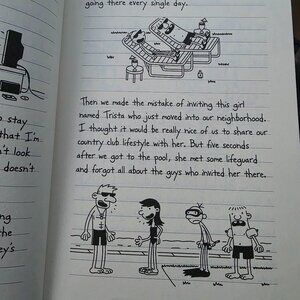 going there every single day.
Then we made the mistake of inviting this girl
named Trista who just moved into our neighborhood.
I thought it would be really nice of us to share our
country club lifestyle with her. But five seconds
after we got to the pool, she met some lifeguard
and forgot all about the guys who invited her there.
o stay
that I'm
n't look
doesn't
ng
the
ey's